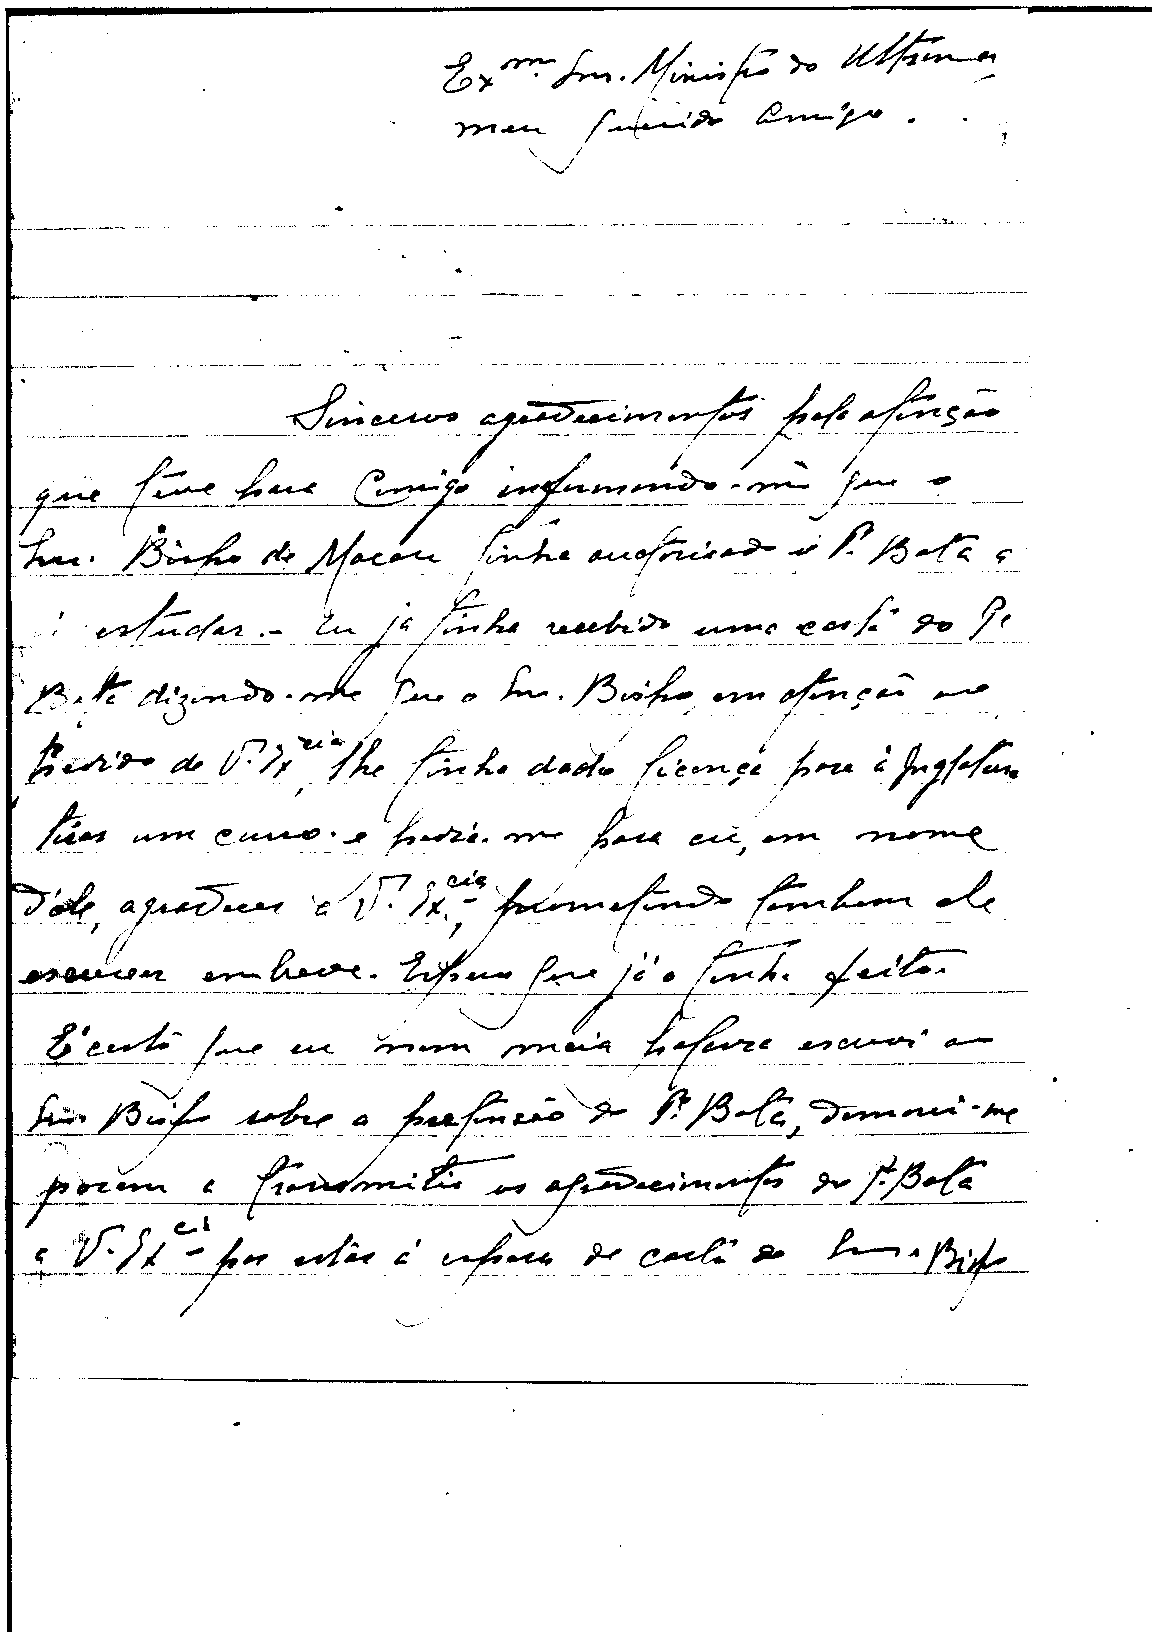 Exmo. Snr. Ministro do Ultramar
meu querido Amigo.
Sinceros agradecimentos pela atenção
que teve para Comigo informando-me que o
Snr. Bispo de Macau tinha auctorisado o P.e Bata a
ir estudar. - Eu já tinha recebido uma carta do P.e
Bata dizendo-me que o Snr. Bispo, em atenção ao
pedido de V. Ex.cia, lhe tinha dado licença para à Inglaterra
tirar um curso e pedia-me para eu, em nome
d'ele, agradecer a V. Ex.cia, prometendo tambem ele
escrever em breve. Espero que já o tinha feito.
É certo que eu nem meia palavra escrevi ao
Snr. Bispo sobre a pretensão do P.e Bata, demorei-me
porem a transmitir os agradecimentos do P.e Bata
a V. Ex.cia por estar à espera de carta do Snr. Bispo